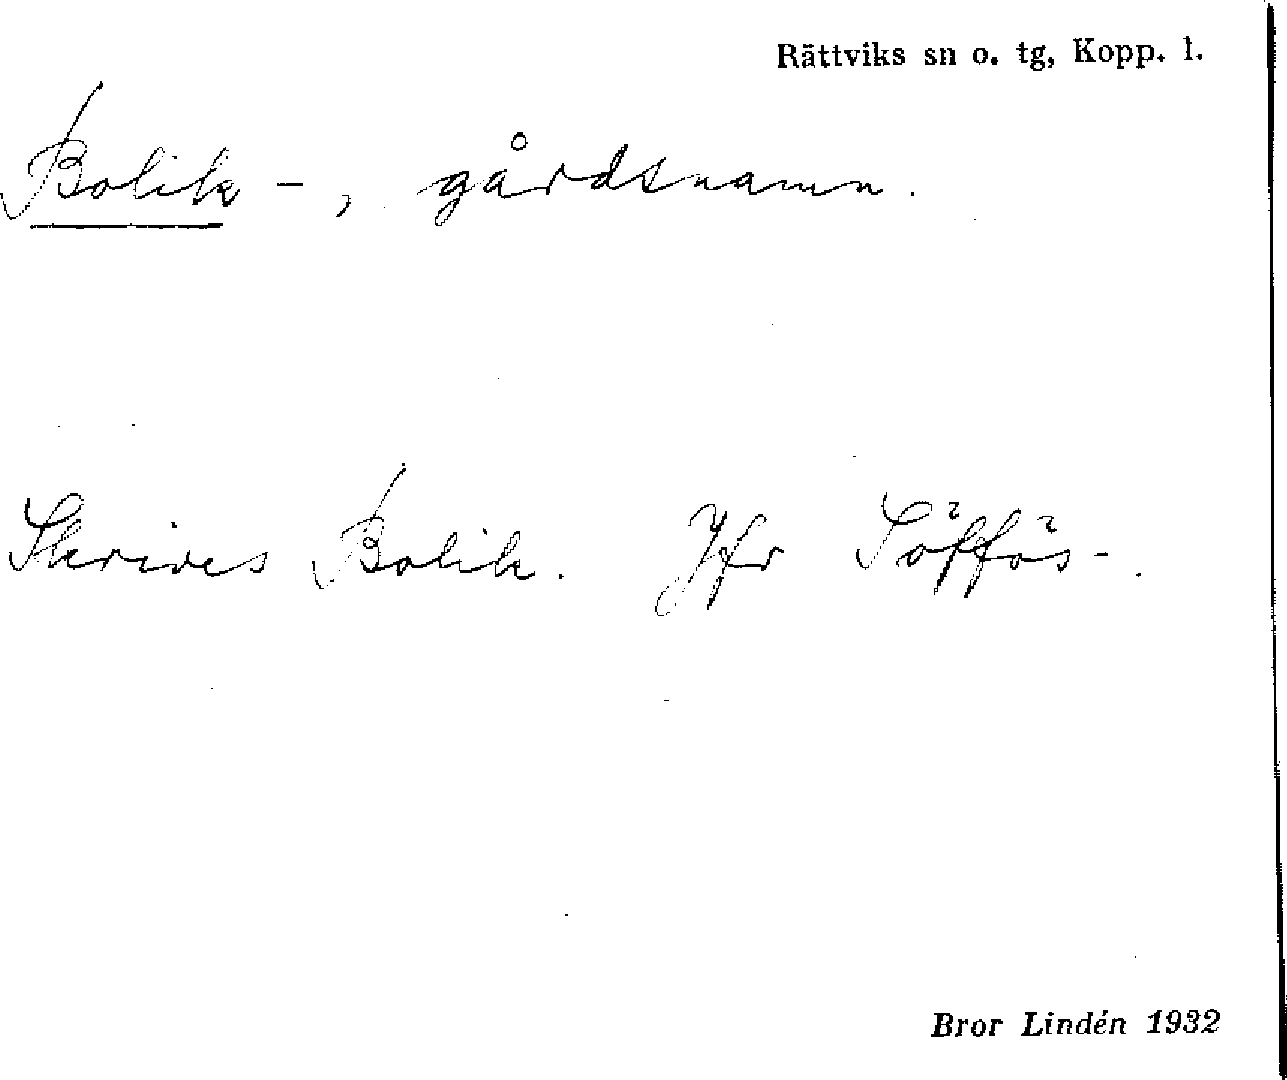 Rättviks sn o. tg, Kopp. l.
Bolik -, gårdsnamn.
Skrives Bolik. Jfr Söffös-.
Bror Lindén 1932